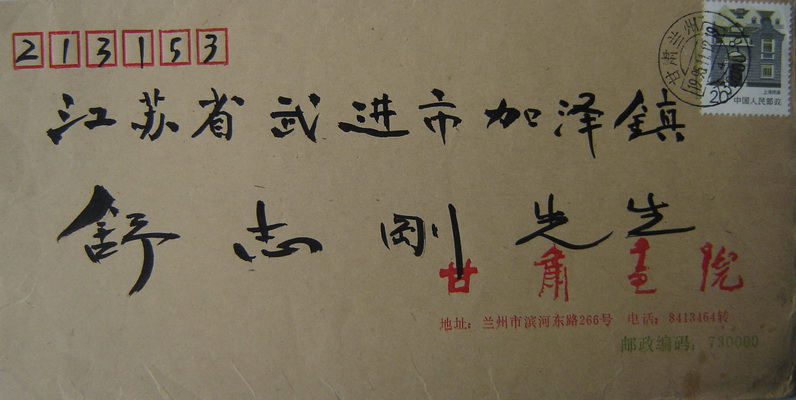 213153
江苏省武进市加泽鎮
舒志刚先生
甘肃画院
地址：兰州市滨河东路266号 电话：8413464转
邮政编码：730000
甘肃兰州
上海民居
中国人民邮政